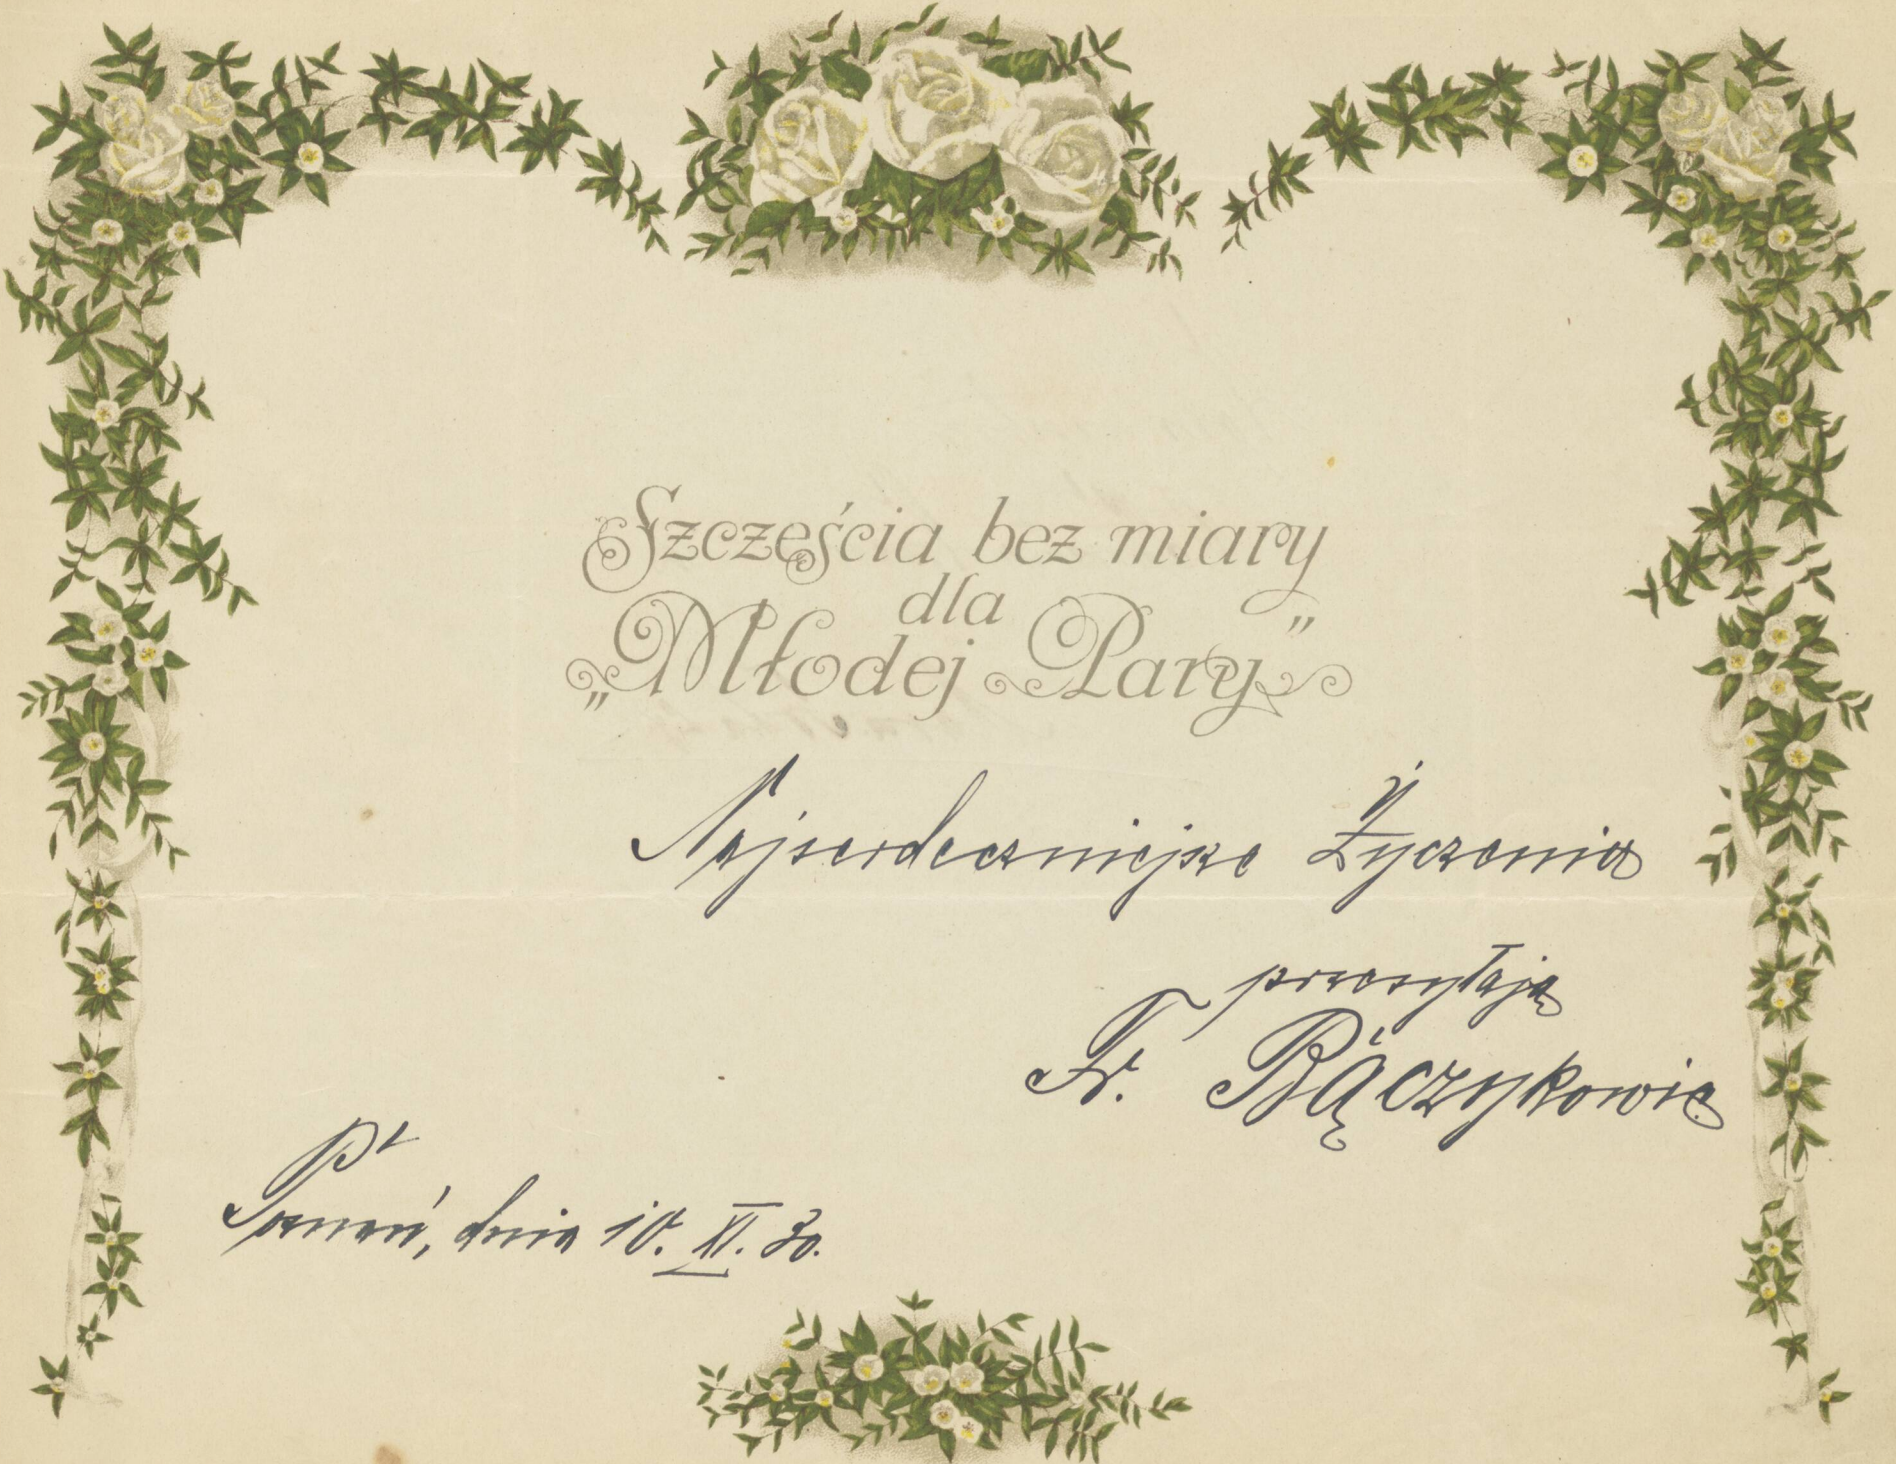 Szczęścia bez miary
dla
„Młodej Pary”
Najserdeczniejsze Życzenia
przesyłają
Fr. Bączykowie
Poznań, dnia 10. XI. 30.